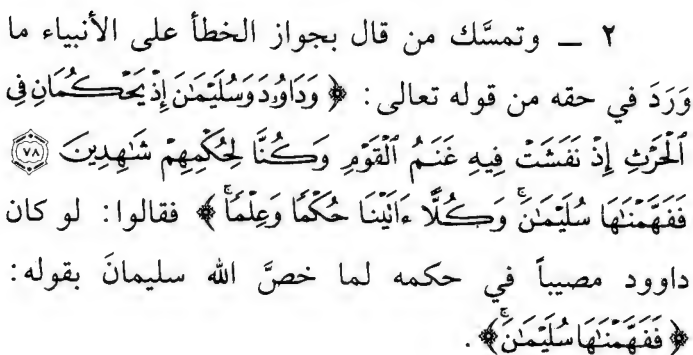 ٢ ـ وتمسَّك من قال بجواز الخطأ على الأنبياء ما
وَرَدَ في حقه من قوله تعالى: ﴿وَدَاوُۥدَ وَسُلَيْمَٰنَ إِذْ يَحْكُمَانِ فِى
ٱلْحَرْثِ إِذْ نَفَشَتْ فِيهِ غَنَمُ ٱلْقَوْمِ وَكُنَّا لِحُكْمِهِمْ شَٰهِدِينَ ٧٨
فَفَهَّمْنَٰهَا سُلَيْمَٰنَۚ وَكُلًّا ءَاتَيْنَا حُكْمًا وَعِلْمًاۚ﴾ فقالوا: لو كان
داوود مصيباً في حكمه لما خصَّ الله سليمانَ بقوله:
﴿فَفَهَّمْنَٰهَا سُلَيْمَٰنَۚ﴾.